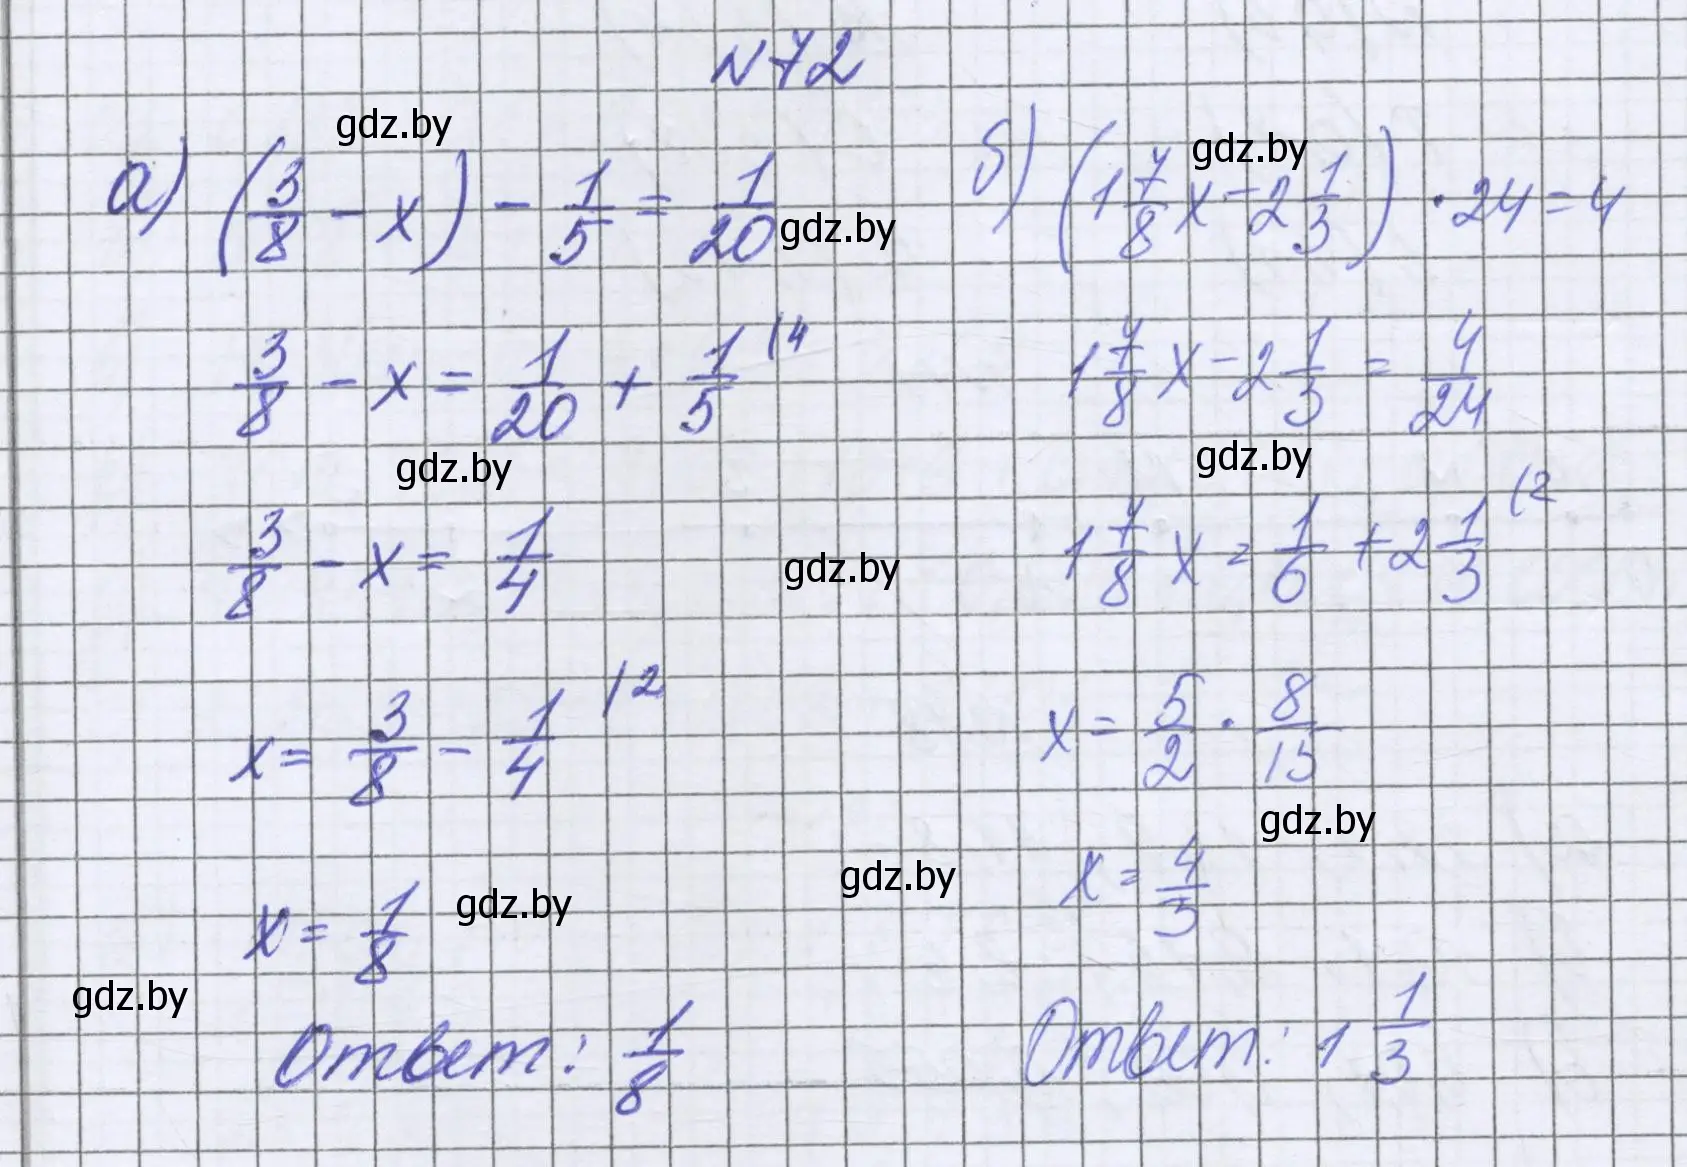 №72
gdz.by
а) (3/8 - x) - 1/5 = 1/20
gdz.by
3/8 - x = 1/20 + 1/5 (4
gdz.by
3/8 - x = 1/4
gdz.by
x = 3/8 - 1/4 (2
x = 1/8
gdz.by
gdz.by
gdz.by
Ответ: 1/8
б) (1 7/8 x - 2 1/3) · 24 = 4
gdz.by
1 7/8 x - 2 1/3 = 4/24
gdz.by
1 7/8 x = 1/6 + 2 1/3 (2
x = 5/2 · 8/15
gdz.by
x = 4/3
Ответ: 1 1/3